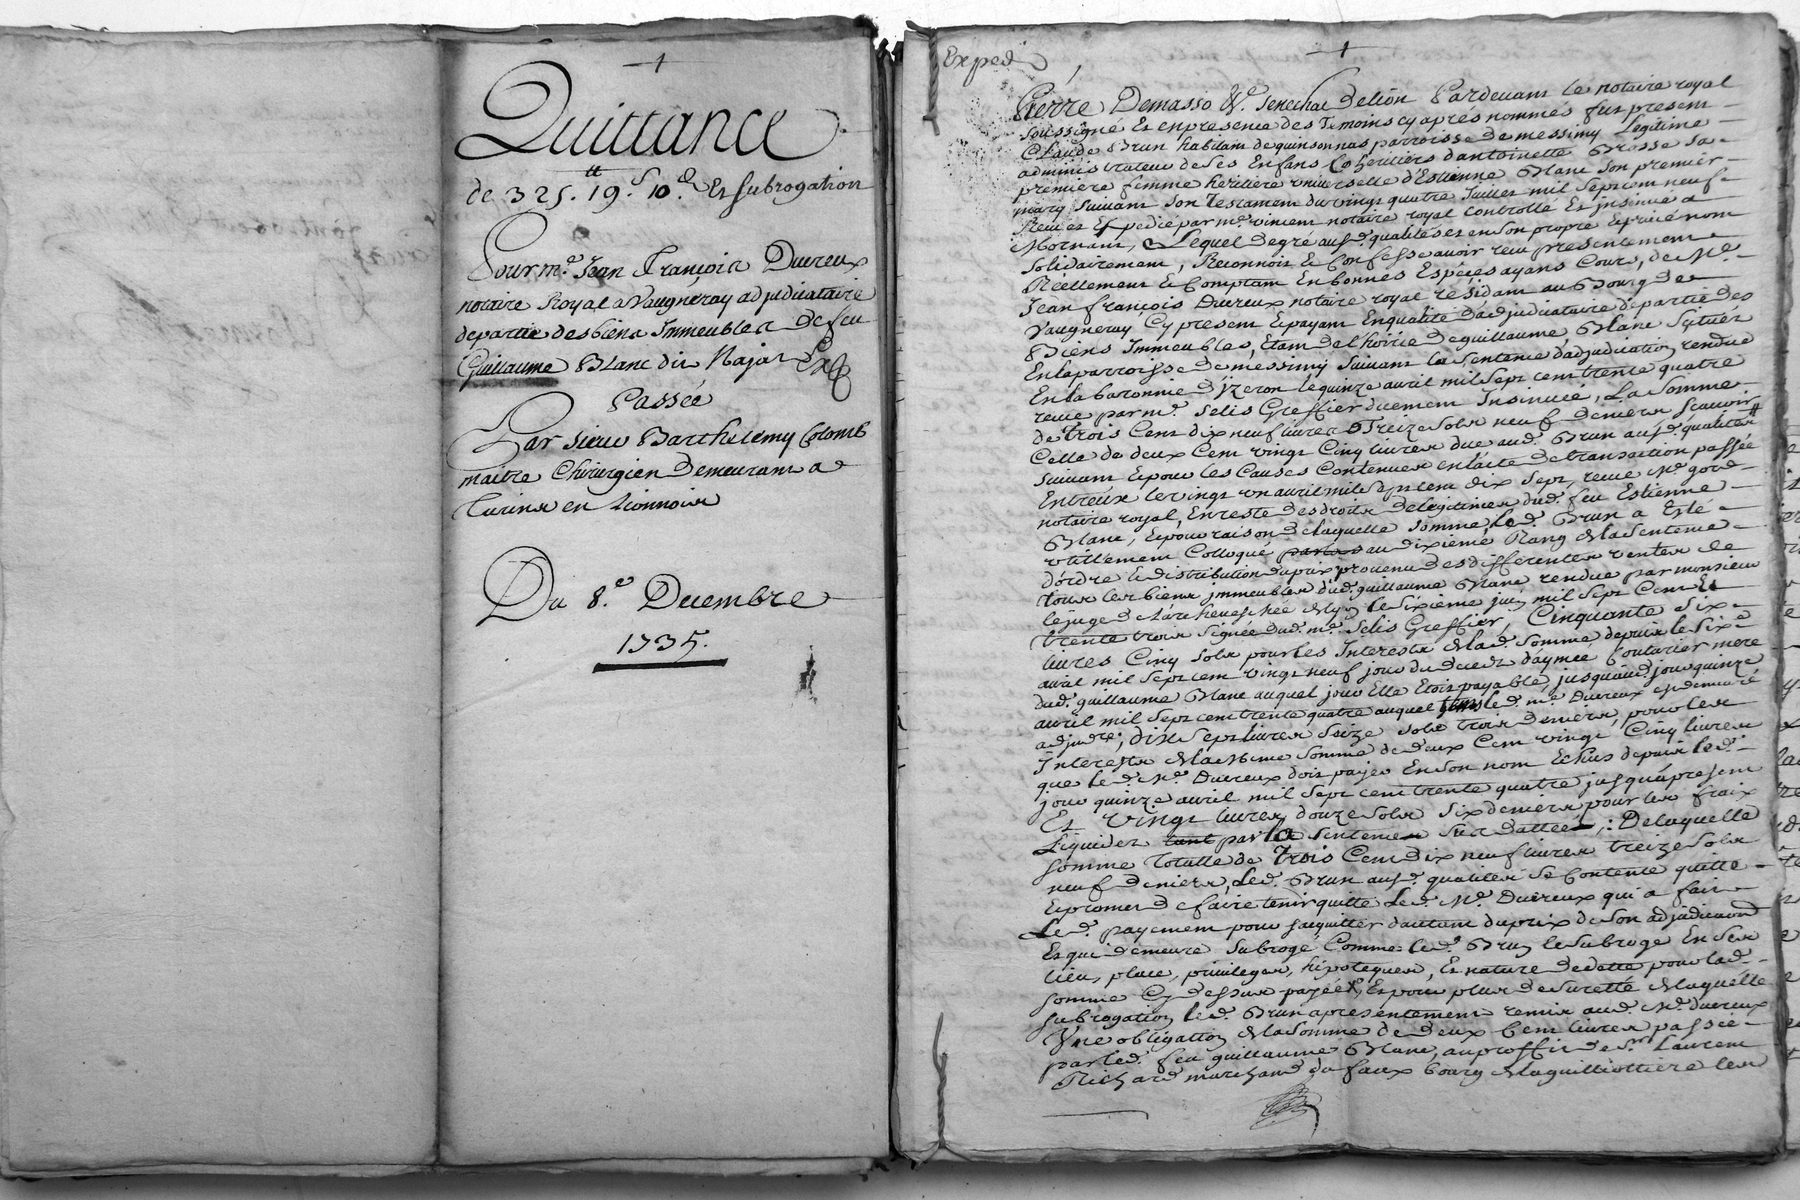 Quittance
de 325.tt 19.s 10.d Et subrogation
Pour me. Jean François Ducreux
notaire Royal a Vaugneray adjudicataire
de partie des biens Immeubles de feu
Guillaume Blanc dit Najat
Passée
Par sieur Barthelemy Colomb
maitre Chirurgien demeurant a
Turins en Lionnois
Du 8.e Decembre
1735.
Exped
Pierre Demasso &c. senechal de lion Pardevant le notaire royal
soussigné Et en presence des Temoins cy apres nommés fut present
Claude Brun habitant de quinsonnas parroisse de messimy Legitime
administrateur de ses Enfans Coheritiers d'antoinette Brosse sa
premiere femme heritiere universelle d'Estienne Blanc son premier
mary suivant son Testament du vingt quatre Juillet mil sept cent neuf
Receu Et Expedié par me. vincent notaire royal controllé Et insinué a
Mornant, Lequel de gré ausd. qualités et en son propre Eprivé nom
solidairement, Reconnoit & Confesse avoir receu presentement
Réellement & Comptant En bonnes Espéces ayant Cours, de Me.
Jean françois Ducreux notaire royal residant au Bourg de
Vaugneray Cy present Epayant En qualité d'adjudicataire de partie des
Biens Immeubles, Etant de l'hoirie de guillaume Blanc Situés
En la parroisse de messimy suivant la sentence d'adjudication rendue
En la baronnie d'jzeron le quinze avril mil sept cent trente quatre
receue par me. Selis Greffier duement Insinuée, La somme
de trois Cent dix neuf livres treize sols neuf deniers scavoir
Celle de deux Cent vingt Cinq livres due aud. Brun ausd. qualités
suivant Epour les Causes Contenues en l'acte de transaction passée
Entreux le vingt un avril mil sept cent dix sept, receue Me. gord
notaire royal, En reste des droits de legitimes dud. feu Estienne
Blanc, Epour raison de laquelle somme, Led. Brun a Esté
utillement Colloqué au dixieme Rang de la sentence
d'ordre & distribution du prix provenu des differentes ventes de
tous les biens jmmeubles dud. guillaume Blanc rendue par monsieur
le juge de l'archeveschée de lyon le sixieme juin mil sept Cent
trente trois signée dud. me. Selis Greffier, Cinquante six
livres Cinq sols pour les Interests de lad. somme depuis le six
avril mil sept cent vingt neuf jour du deceds d'aymée Coutarier mere
dud. guillaume Blanc auquel jour Elle Etoit payable, jusquaud. jour quinze
avril mil sept cent trente quatre auquel led. me. Ducreux est demeuré
adjudre., dix sept livres seize sols trois deniers, pour les
Interests de la même somme de deux Cent vingt Cinq livres
que led. Me. Ducreux doit payer En son nom Echus depuis led.
jour quinze avril mil sept cent trente quatre jusqu'apresent
Et vingt livres douze sols six deniers pour les fraix
Liquidés par la sentence susdattée; De laquelle
somme Totalle de trois Cent dix neuf livres treize sols
neuf deniers, Led. Brun ausd. qualités se Contente quitte
Epromet de faire tenir quitte Led. Me. Ducreux qui a fait
Led. payement pour s'acquitter d'autant du prix de son adjudication
Et qui demeure subrogé Comme led. Brun le subroge En ses
lieu, place, privileges, hipoteques, Et nature de dette pour lad.
somme Cy dessus payée, Et pour plus de sureté de laquelle
subrogation led. Brun a presentement remis aud. Me. ducreux
Une obligation de la somme de deux Cent livres passée
par led. feu guillaume Blanc, au proffit de sr. Laurent
Richard marchand du faux bourg de la guilliottiere les